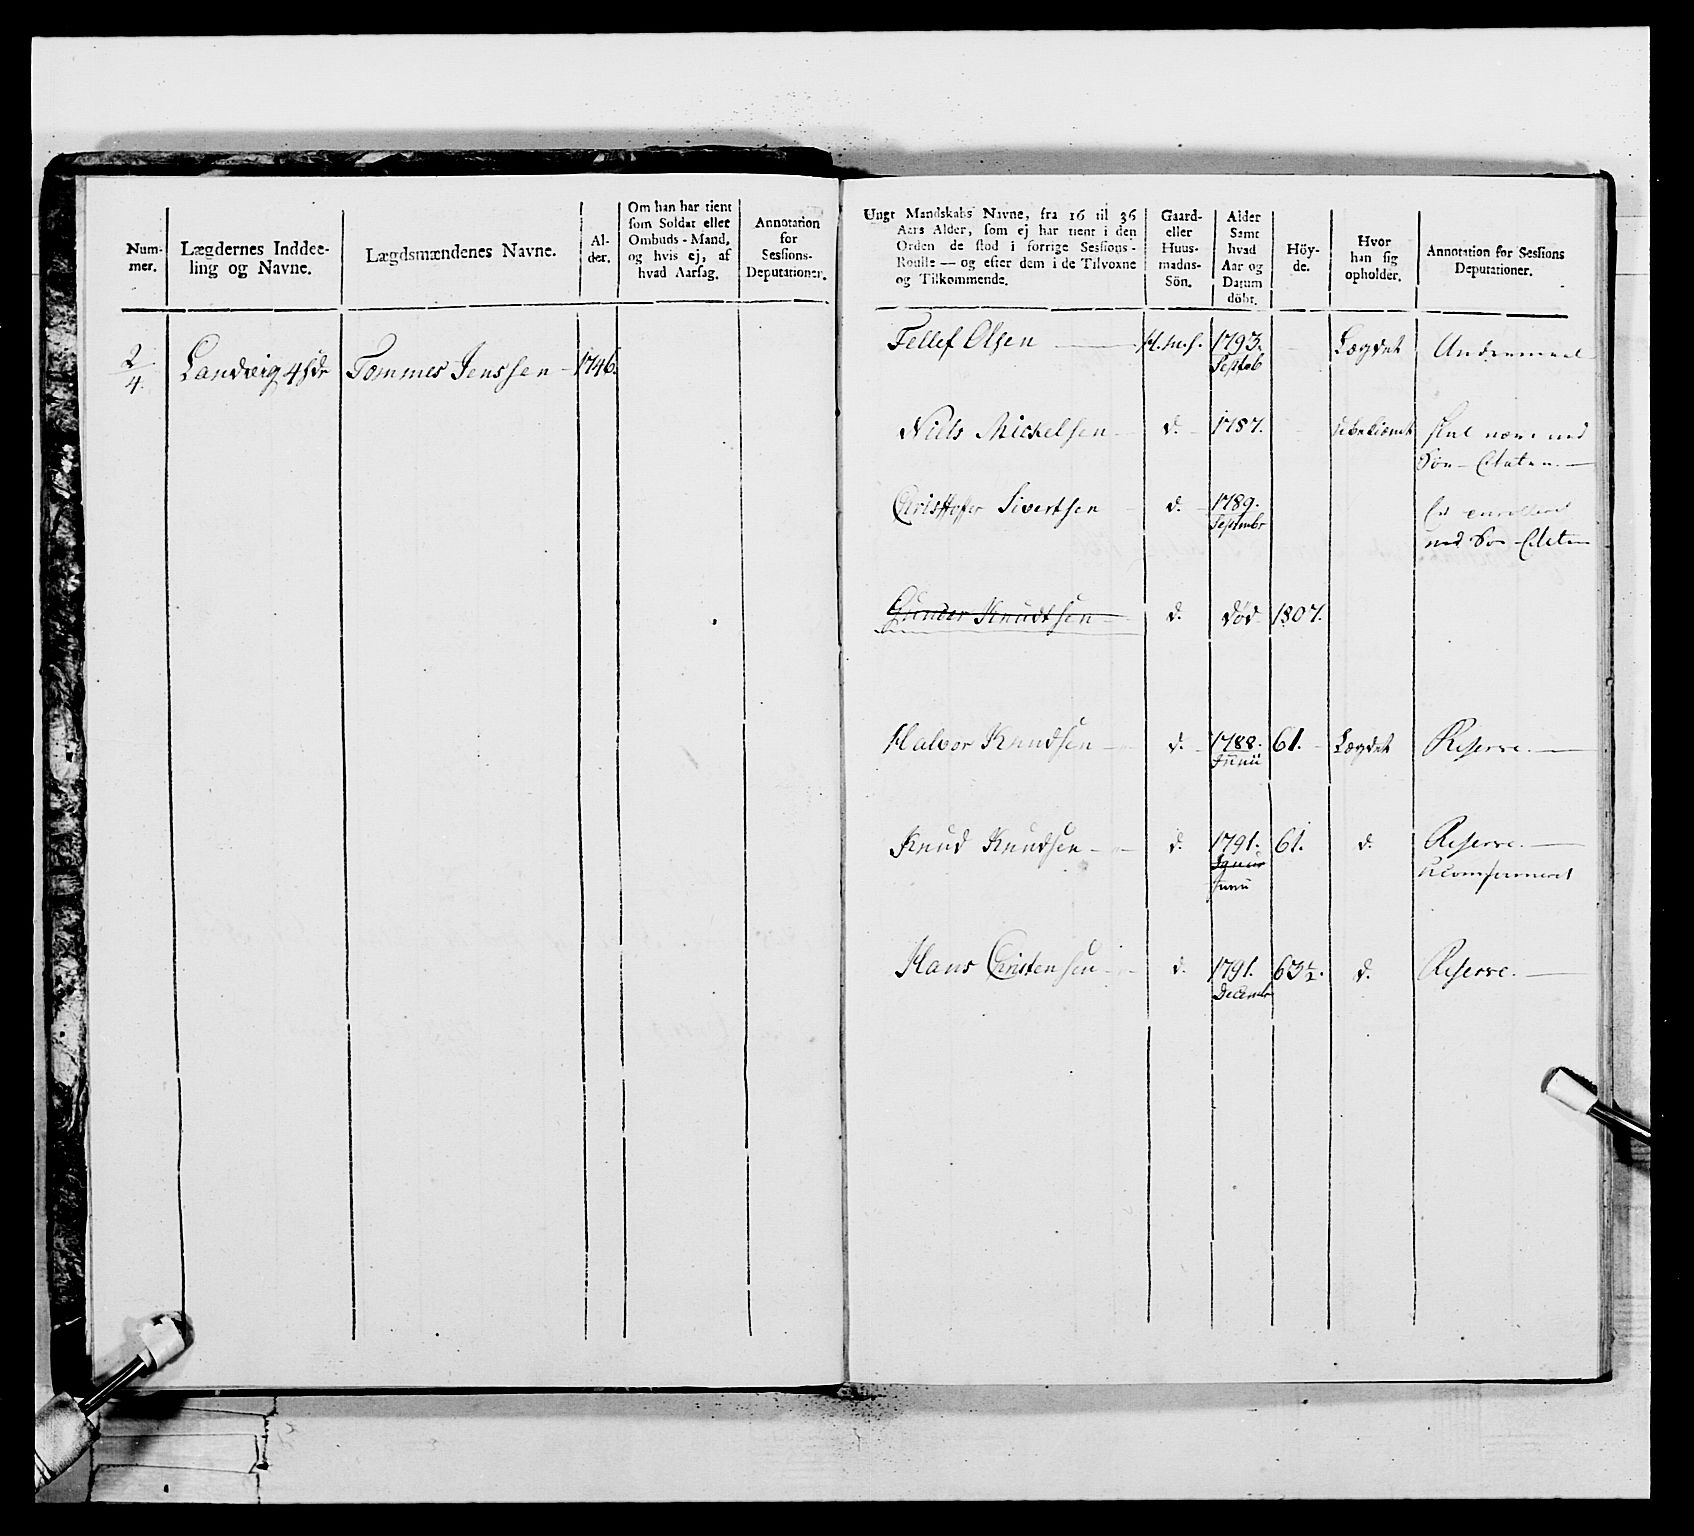 Num-
mer.
Lægdernes Inddee-
ling og Navne.
Lægdsmændenes Navne.
Al-
der.
Om han har tient
som Soldat eller
Ombuds-Mand,
og hvis ej, af
hvad Aarsag.
Annotation
for
Sessions-
Deputationer.
2/4. Landvig 4 Tommes Jenssen 1746.
Ungt Mandskabs Navne, fra 16 til 36
Aars Alder, som ej har tient i den
Orden de stod i forrige Sessions-
Roulle — og efter dem i de Tilvoxne
og Tilkommende.
Gaard-
eller
Huus-
mands-
Sön.
Alder
Samt
hvad
Aar og
Datum
döbt.
Höy-
de.
Hvor
han sig
opholder.
Annotation for Sessions
Deputationer.
Tellef Olsen — H.m.s. 1793. Lægdet Undermaal
Septeb
Niels Mickelsen — d. 1787. ubekiændt skal være ved
Søe-Etaten. —
Christoffer Sivertsen d. 1789. er enrolleret
Septembr ved Søe-Etaten
Gunder Knudtsen — d. død 1807.
Halvor Knudsen — d. 1788. 61. Lægdet Reserve. —
Junii
Knud Knudsen — d. 1791. 61. d. Reserve. —
Junii
Hans Christensen — d. 1791. 63½. d. Reserve. —
Decembr